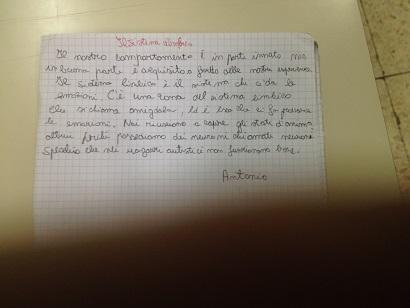 Il sistema
Il nostro comportamento è in parte innato ma
in buona parte è acquisito e frutto delle nostre esperienze
Il sistema limbico è il sistema che ci da le
emozioni. C'è una zona del sistema limbico
che si chiama amigdala ed è essa che ci fa provare
le emozioni. Noi riusciamo a capire gli stati d'animo
altrui perché possediamo dei neuroni chiamati neuroni
specchio che nei ragazzi autistici non funzionano bene.
Antonio